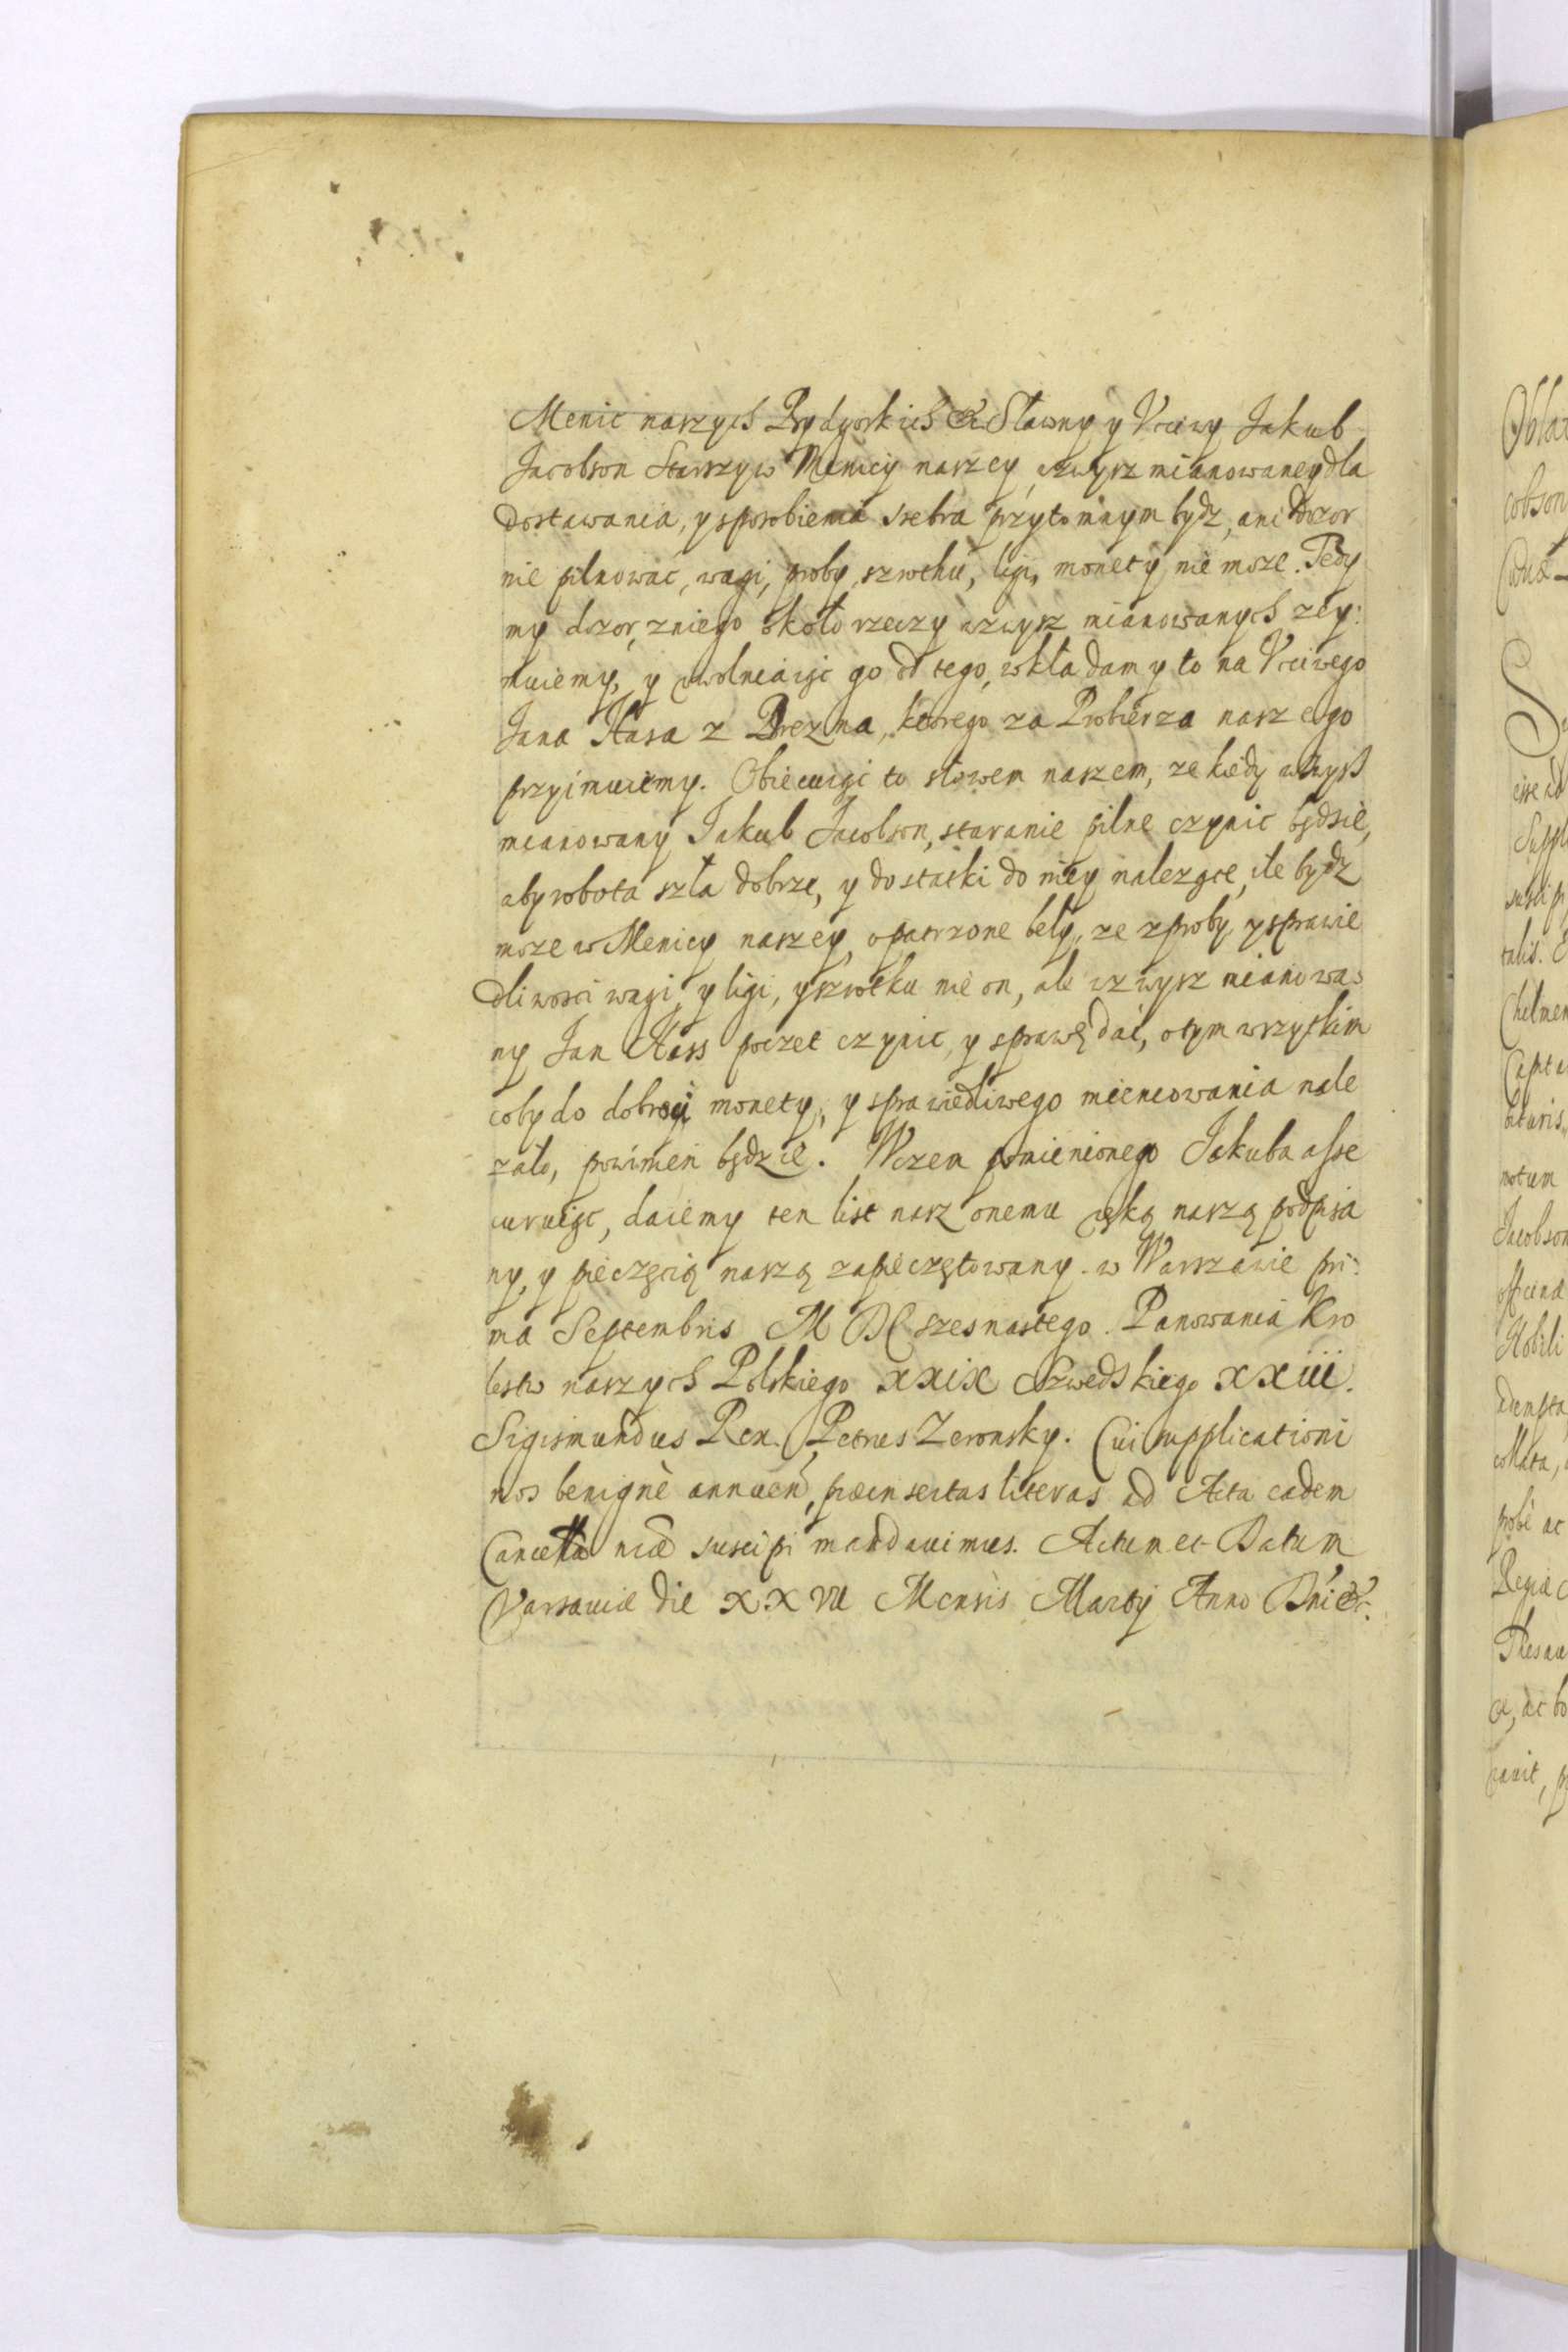 Menic naszych Bydgoskich &c Sławny y Vcciwy Jakub
Jacobson Starszy w Menicy naszey wzwysz mianowaney dla
dostawania, y sposobienia srebra przytomnym bydz, ani dozor
nie pilnować, wagi, proby, szrothu, ligi, monety nie moze. Tedy
my dozor, zniego około rzeczy wzwysz mianowanych zey:
muiemy, y uwolniaiąc go od tego, wkładamy to na Vcciwego
Jana Hasa z Brezna, ktorego za Probierza naszego
przyimuiemy. Obiecuiąc to słowem naszem, ze kiedy wzwysz
mianowany Jakub Jacobson, staranie pilne czynic będzie,
aby robota szła dobrze, y dostatki do niey nalezące, ile bydz
moze w Menicy naszey, opatrzone beły, ze z proby, y sprawie
dliwosci wagi, y ligi, y szrothu nie on, ale wzwysz mianowa
ny Jan Hass poczet czynic, y sprawę dać, o tym wszytkim
coby do dobroci monety, y sprawiedliwego mięncowania nale
zało, powinien będzie. W czem pomienionego Jakuba asse
curuiąc, daiemy ten list nasz onemu ręką naszą podpisa
ny, y pieczęcią naszą zapieczętowany. w Warszawie pri:
ma Septembris M DC szesnastego. Panowania Kro
lestw naszych Polskiego XXIX Szwedskiego XXIII.
Sigismundus Rex. Petrus Zeronsky. Cui supplicationi
nos benignè annuen, præinsertas literas ad Acta eadem
Cancellà nrae suscipi mandauimus. Actum et Datum
Varsauiæ die XXVII Mensis Martij Anno Dni &c.
Oblat
cobson
Suppl
talis.
Chelmen
Capta
notum
Jacobson
Nobili
adempta
collata,
probè ac
Regiæ
Thesau